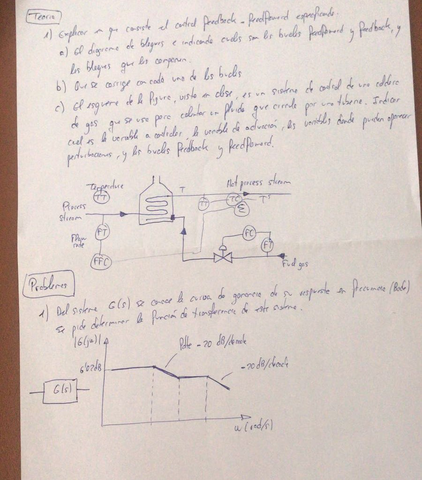 Teoría
1) Explicar en que consiste el control feedback - feedforward especificando:
a) El diagrama de bloques e indicando cuales son los bucles feedforward y feedback, y
los bloques que los componen.
b) Que se corrige con cada uno de los bucles
c) El esquema de la figura, visto en clase, es un sistema de control de una caldera
de gas, que se usa para calentar un fluido que circula por una tubería. Indicar
cual es la variable a controlar, la variable de actuación, las variables donde pueden aparecer
perturbaciones, y los bucles feedback y feedforward.
Temperature
TT
T
Hot process stream
TT
TC
T*
Σ
Process
stream
FT
Flow
rate
FFC
FC
FT
Fuel gas
Problemas
1) Del sistema G(s) se conoce la curva de ganancia de su respuesta en frecuencia (Bode)
se pide determinar la función de transferencia de este sistema.
|G(jω)|
dB
Pdte -20 dB/década
-20dB/década
G(s)
ω (rad/s)